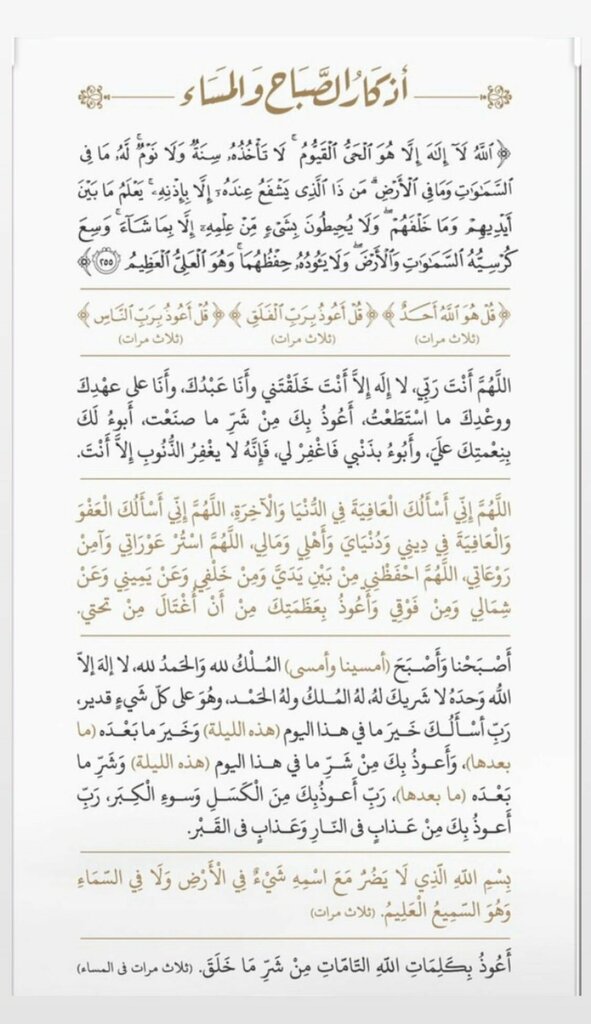 أذكار الصَّبَاح وَالمَسَاء
﴿ ٱللَّهُ لَآ إِلَٰهَ إِلَّا هُوَ ٱلْحَىُّ ٱلْقَيُّومُ ۚ لَا تَأْخُذُهُۥ سِنَةٌ وَلَا نَوْمٌ ۚ لَّهُۥ مَا فِى
ٱلسَّمَٰوَٰتِ وَمَا فِى ٱلْأَرْضِ ۗ مَن ذَا ٱلَّذِى يَشْفَعُ عِندَهُۥٓ إِلَّا بِإِذْنِهِۦ ۚ يَعْلَمُ مَا بَيْنَ
أَيْدِيهِمْ وَمَا خَلْفَهُمْ ۖ وَلَا يُحِيطُونَ بِشَىْءٍ مِّنْ عِلْمِهِۦٓ إِلَّا بِمَا شَآءَ ۚ وَسِعَ
كُرْسِيُّهُ ٱلسَّمَٰوَٰتِ وَٱلْأَرْضَ ۖ وَلَا يَـُٔودُهُۥ حِفْظُهُمَا ۚ وَهُوَ ٱلْعَلِىُّ ٱلْعَظِيمُ ٢٥٥ ﴾
﴿ قُلْ هُوَ ٱللَّهُ أَحَدٌ ﴾ ﴿ قُلْ أَعُوذُ بِرَبِّ ٱلْفَلَقِ ﴾ ﴿ قُلْ أَعُوذُ بِرَبِّ ٱلنَّاسِ ﴾
(ثلاث مرات) (ثلاث مرات) (ثلاث مرات)
اللَّهُمَّ أَنْتَ رَبِّي، لا إِلَه إِلاَّ أَنْتَ خَلَقْتَني وأَنَا عَبْدُكَ، وأَنَا على عهْدِكَ
ووعْدِكَ ما اسْتَطَعْتُ، أَعُوذُ بِكَ مِنْ شَرِّ ما صنَعْت، أَبوءُ لَكَ
بِنِعْمتِكَ علَيَّ، وأَبُوءُ بذَنْبي فَاغْفِرْ لي، فَإِنَّهُ لا يغْفِرُ الذُّنُوبِ إِلاَّ أَنْتَ.
اللَّهُمَّ إِنِّي أَسْأَلُكَ الْعَافِيَةَ فِي الدُّنْيَا وَالْآخِرَةِ، اللَّهُمَّ إِنِّي أَسْأَلُكَ الْعَفْوَ
وَالْعَافِيَةَ فِي دِينِي وَدُنْيَايَ وَأَهْلِي وَمَالِي، اللَّهُمَّ اسْتُرْ عَوْرَاتِي وَآمِنْ
رَوْعَاتِي، اللَّهُمَّ احْفَظْنِي مِنْ بَيْنِ يَدَيَّ وَمِنْ خَلْفِي وَعَنْ يَمِينِي وَعَنْ
شِمَالِي وَمِنْ فَوْقِي وَأَعُوذُ بِعَظَمَتِكَ مِنْ أَنْ أُغْتَالَ مِنْ تَحتِي.
أَصْبَحْنا وَأَصْبَحَ (أمسينا وأمسى) المُلْكُ لله وَالحَمدُ لله، لا إلهَ إلاّ
الله وَحدَهُ لا شَريكَ لهُ، لهُ المُلكُ ولهُ الحَمْد، وهُوَ على كلّ شَيءٍ قدير،
رَبِّ أسْأَلُكَ خَيرَ ما في هذا اليوم (هذه الليلة) وَخَيرَ ما بَعْدَه (ما
بعدها)، وَأَعوذُ بِكَ مِنْ شَرِّ ما في هذا اليوم (هذه الليلة) وَشَرِّ ما
بَعْدَه (ما بعدها)، رَبِّ أَعوذُبِكَ مِنَ الْكَسَلِ وَسوءِ الْكِبَر، رَبِّ
أَعوذُ بِكَ مِنْ عَذابٍ في النّارِ وَعَذابٍ في القَبْر.
بِسْمِ اللهِ الَّذِي لَا يَضُرُّ مَعَ اسْمِهِ شَيْءٌ فِي الْأَرْضِ وَلَا فِي السَّمَاءِ
وَهُوَ السَّمِيعُ الْعَلِيمُ. (ثلاث مرات)
أَعُوذُ بِكَلِمَاتِ اللهِ التَّامَّاتِ مِنْ شَرِّ مَا خَلَقَ. (ثلاث مرات في المساء)